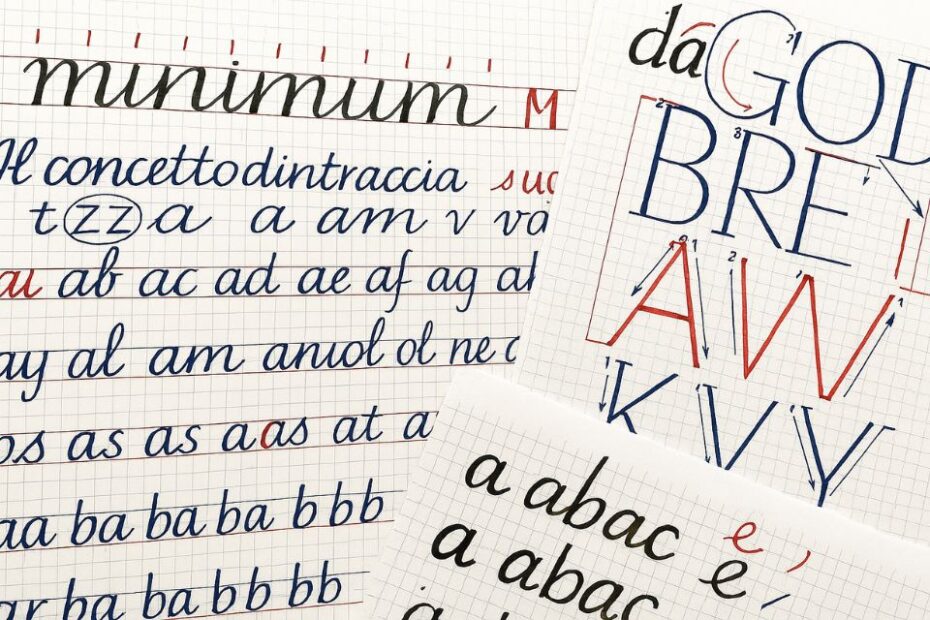 minimum M
Il concetto d'intraccia
tzza a am v va
au ab ac ad ae af ag
ay al am aniol ol ne c
os as as aas at a
aa ba ba ba b bb
ar ba ba bb bb
da GOD
BRE
AW
KVY
a abac e
a abac e